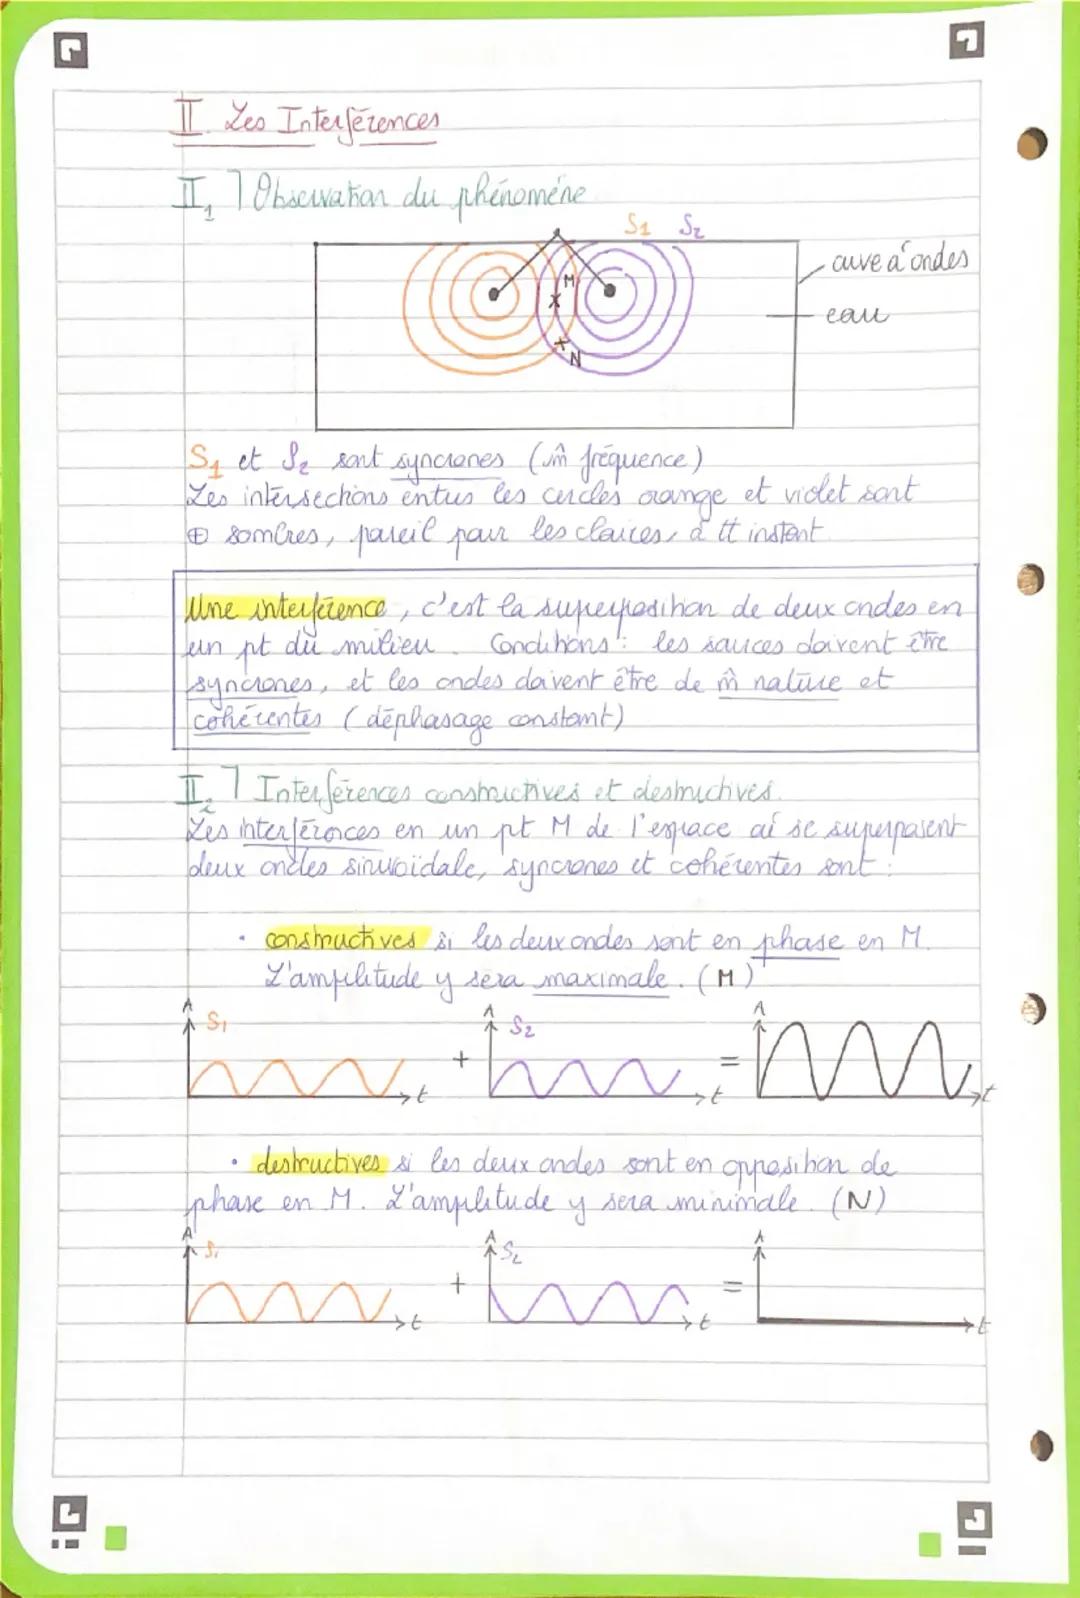 II. Les Interférences
II₁ ] Observation du phénoméne
S₁ S₂
cuve a ondes
M
eau
N
S₁ et S₂ sont syncrones (m̂ fréquence)
Les intersections entres les cercles orange et violet sont
⊕ sombres, pareil pour les claires, à tt instant.
Une interférence, c'est la superposition de deux ondes en
un pt du milieu. Conditions : les sources doivent être
syncrones, et les ondes doivent être de m̂ nature et
cohérentes (déphasage constant)
II₂ ] Interférences constructives et destructives.
Les interférences en un pt M de l'espace où se superposent
deux ondes sinusoïdale, syncrones et cohérentes sont :
• constructives si les deux ondes sont en phase en M.
L'amplitude y sera maximale. (M)
A S₁ t + A S₂ t = A t
• destructives si les deux ondes sont en opposition de
phase en M. L'amplitude y sera minimale. (N)
A S₁ t + A S₂ t = A t